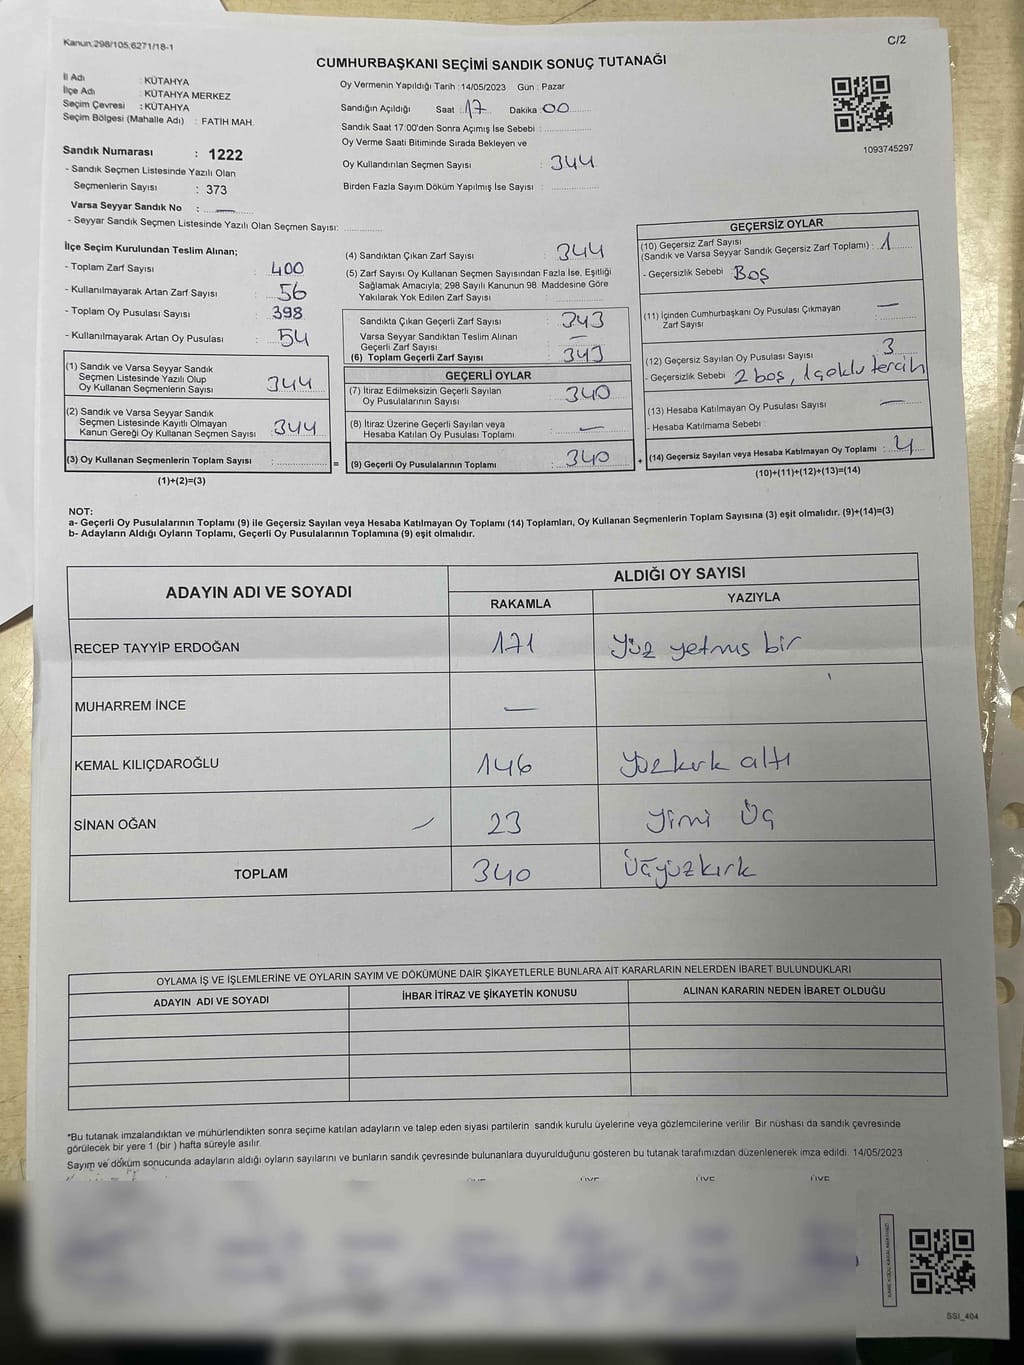 Kanun:298/105,6271/18-1
C/2
CUMHURBAŞKANI SEÇİMİ SANDIK SONUÇ TUTANAĞI
İl Adı : KÜTAHYA
İlçe Adı : KÜTAHYA MERKEZ
Seçim Çevresi : KÜTAHYA
Seçim Bölgesi (Mahalle Adı) : FATİH MAH.
Oy Vermenin Yapıldığı Tarih :14/05/2023 Gün : Pazar
Sandığın Açıldığı Saat : 17 Dakika : 00
Sandık Saat 17:00'den Sonra Açımış İse Sebebi :
Oy Verme Saati Bitiminde Sırada Bekleyen ve
Oy Kullandırılan Seçmen Sayısı : 344
Birden Fazla Sayım Döküm Yapılmış İse Sayısı :
1093745297
Sandık Numarası : 1222
- Sandık Seçmen Listesinde Yazılı Olan
Seçmenlerin Sayısı : 373
Varsa Seyyar Sandık No : —
- Seyyar Sandık Seçmen Listesinde Yazılı Olan Seçmen Sayısı:
İlçe Seçim Kurulundan Teslim Alınan;
- Toplam Zarf Sayısı : 400
- Kullanılmayarak Artan Zarf Sayısı : 56
- Toplam Oy Pusulası Sayısı : 398
- Kullanılmayarak Artan Oy Pusulası : 54
(1) Sandık ve Varsa Seyyar Sandık
Seçmen Listesinde Yazılı Olup
Oy Kullanan Seçmenlerin Sayısı : 344
(2) Sandık ve Varsa Seyyar Sandık
Seçmen Listesinde Kayıtlı Olmayan
Kanun Gereği Oy Kullanan Seçmen Sayısı : 344
(3) Oy Kullanan Seçmenlerin Toplam Sayısı : =
(1)+(2)=(3)
(4) Sandıktan Çıkan Zarf Sayısı : 344
(5) Zarf Sayısı Oy Kullanan Seçmen Sayısından Fazla İse, Eşitliği
Sağlamak Amacıyla; 298 Sayılı Kanunun 98. Maddesine Göre
Yakılarak Yok Edilen Zarf Sayısı :
Sandıkta Çıkan Geçerli Zarf Sayısı : 343
Varsa Seyyar Sandıktan Teslim Alınan
Geçerli Zarf Sayısı : —
(6) Toplam Geçerli Zarf Sayısı : 343
GEÇERLİ OYLAR
(7) İtiraz Edilmeksizin Geçerli Sayılan
Oy Pusulalarının Sayısı : 340
(8) İtiraz Üzerine Geçerli Sayılan veya
Hesaba Katılan Oy Pusulası Toplamı : —
(9) Geçerli Oy Pusulalarının Toplamı : 340 +
GEÇERSİZ OYLAR
(10) Geçersiz Zarf Sayısı
(Sandık ve Varsa Seyyar Sandık Geçersiz Zarf Toplamı) : 1
- Geçersizlik Sebebi : Boş
(11) İçinden Cumhurbaşkanı Oy Pusulası Çıkmayan
Zarf Sayısı : —
(12) Geçersiz Sayılan Oy Pusulası Sayısı : 3
- Geçersizlik Sebebi : 2 boş, 1 çoklu tercih
(13) Hesaba Katılmayan Oy Pusulası Sayısı : —
- Hesaba Katılmama Sebebi :
(14) Geçersiz Sayılan veya Hesaba Katılmayan Oy Toplamı : 4
(10)+(11)+(12)+(13)=(14)
NOT:
a- Geçerli Oy Pusulalarının Toplamı (9) ile Geçersiz Sayılan veya Hesaba Katılmayan Oy Toplamı (14) Toplamları, Oy Kullanan Seçmenlerin Toplam Sayısına (3) eşit olmalıdır. (9)+(14)=(3)
b- Adayların Aldığı Oyların Toplamı, Geçerli Oy Pusulalarının Toplamına (9) eşit olmalıdır.
ADAYIN ADI VE SOYADI ALDIĞI OY SAYISI
RAKAMLA YAZIYLA
RECEP TAYYİP ERDOĞAN 171 Yüz yetmış bir
MUHARREM İNCE —
KEMAL KILIÇDAROĞLU 146 Yüzkırk altı
SİNAN OĞAN 23 Yirmi Üç
TOPLAM 340 Üçyüzkırk
OYLAMA İŞ VE İŞLEMLERİNE VE OYLARIN SAYIM VE DÖKÜMÜNE DAİR ŞİKAYETLERLE BUNLARA AİT KARARLARIN NELERDEN İBARET BULUNDUKLARI
ADAYIN ADI VE SOYADI İHBAR İTİRAZ VE ŞİKAYETİN KONUSU ALINAN KARARIN NEDEN İBARET OLDUĞU
*Bu tutanak imzalandıktan ve mühürlendikten sonra seçime katılan adayların ve talep eden siyasi partilerin sandık kurulu üyelerine veya gözlemcilerine verilir. Bir nüshası da sandık çevresinde
görülecek bir yere 1 (bir ) hafta süreyle asılır.
Sayım ve döküm sonucunda adayların aldığı oyların sayılarını ve bunların sandık çevresinde bulunanlara duyurulduğunu gösteren bu tutanak tarafımızdan düzenlenerek imza edildi. 14/05/2023
ÜYE ÜYE ÜYE ÜYE
SSI_404